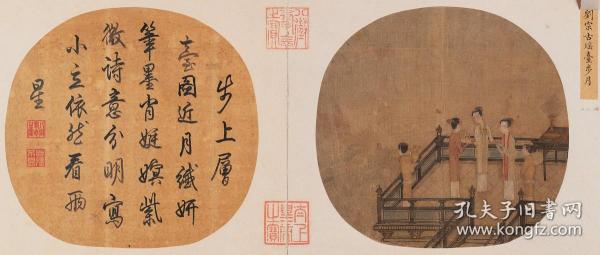 劉宗古瑤臺步月
步上層
臺圖近月纖妍
筆墨肖娗嫇紫
微詩意分明寫
小立依然看兩
星
孔夫子旧书网
www.kongfz.com